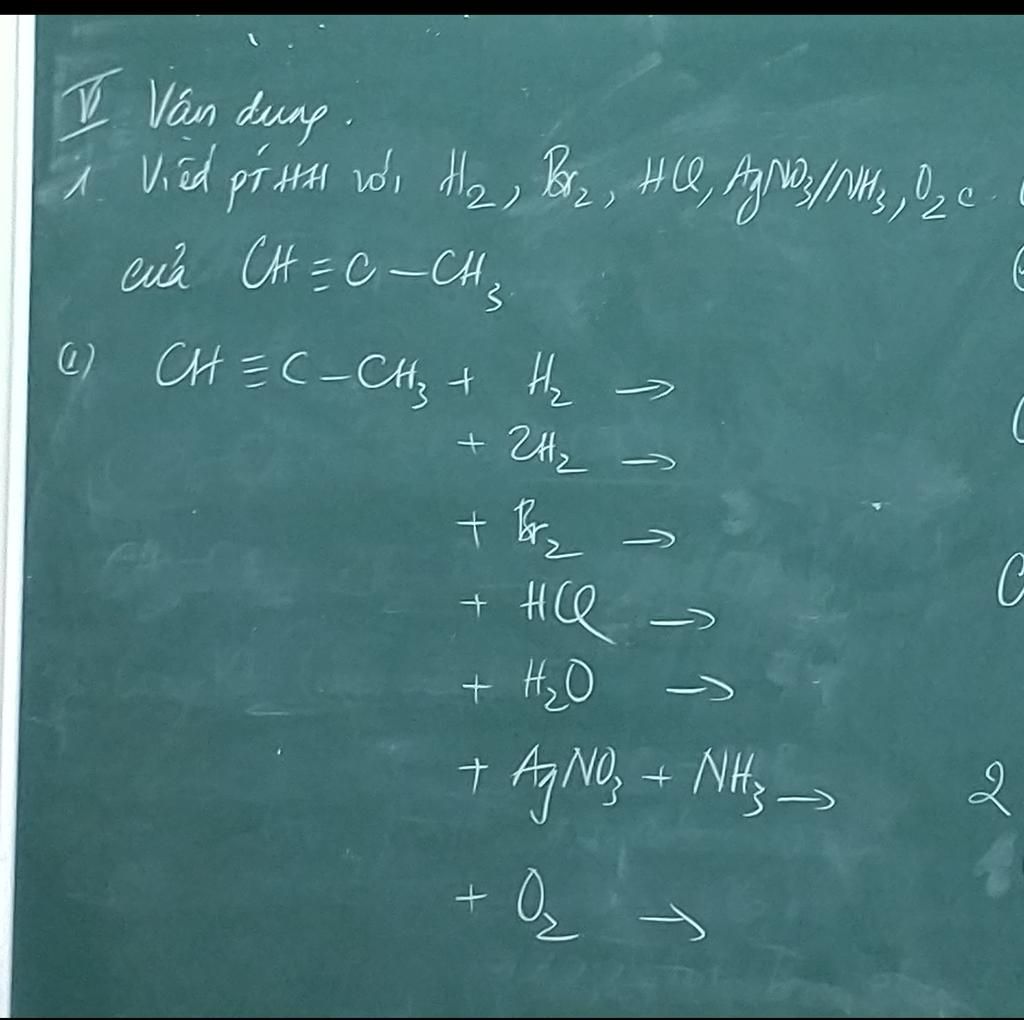 V Vận dụng.
1 Viết ptHH với H₂, Br₂, HCl, AgNO₃/NH₃, O₂
của CH ≡ C – CH₃.
(1) CH ≡ C – CH₃ + H₂ →
+ 2H₂ →
+ Br₂ →
+ HCl →
+ H₂O →
+ AgNO₃ + NH₃ →
2
+ O₂ →